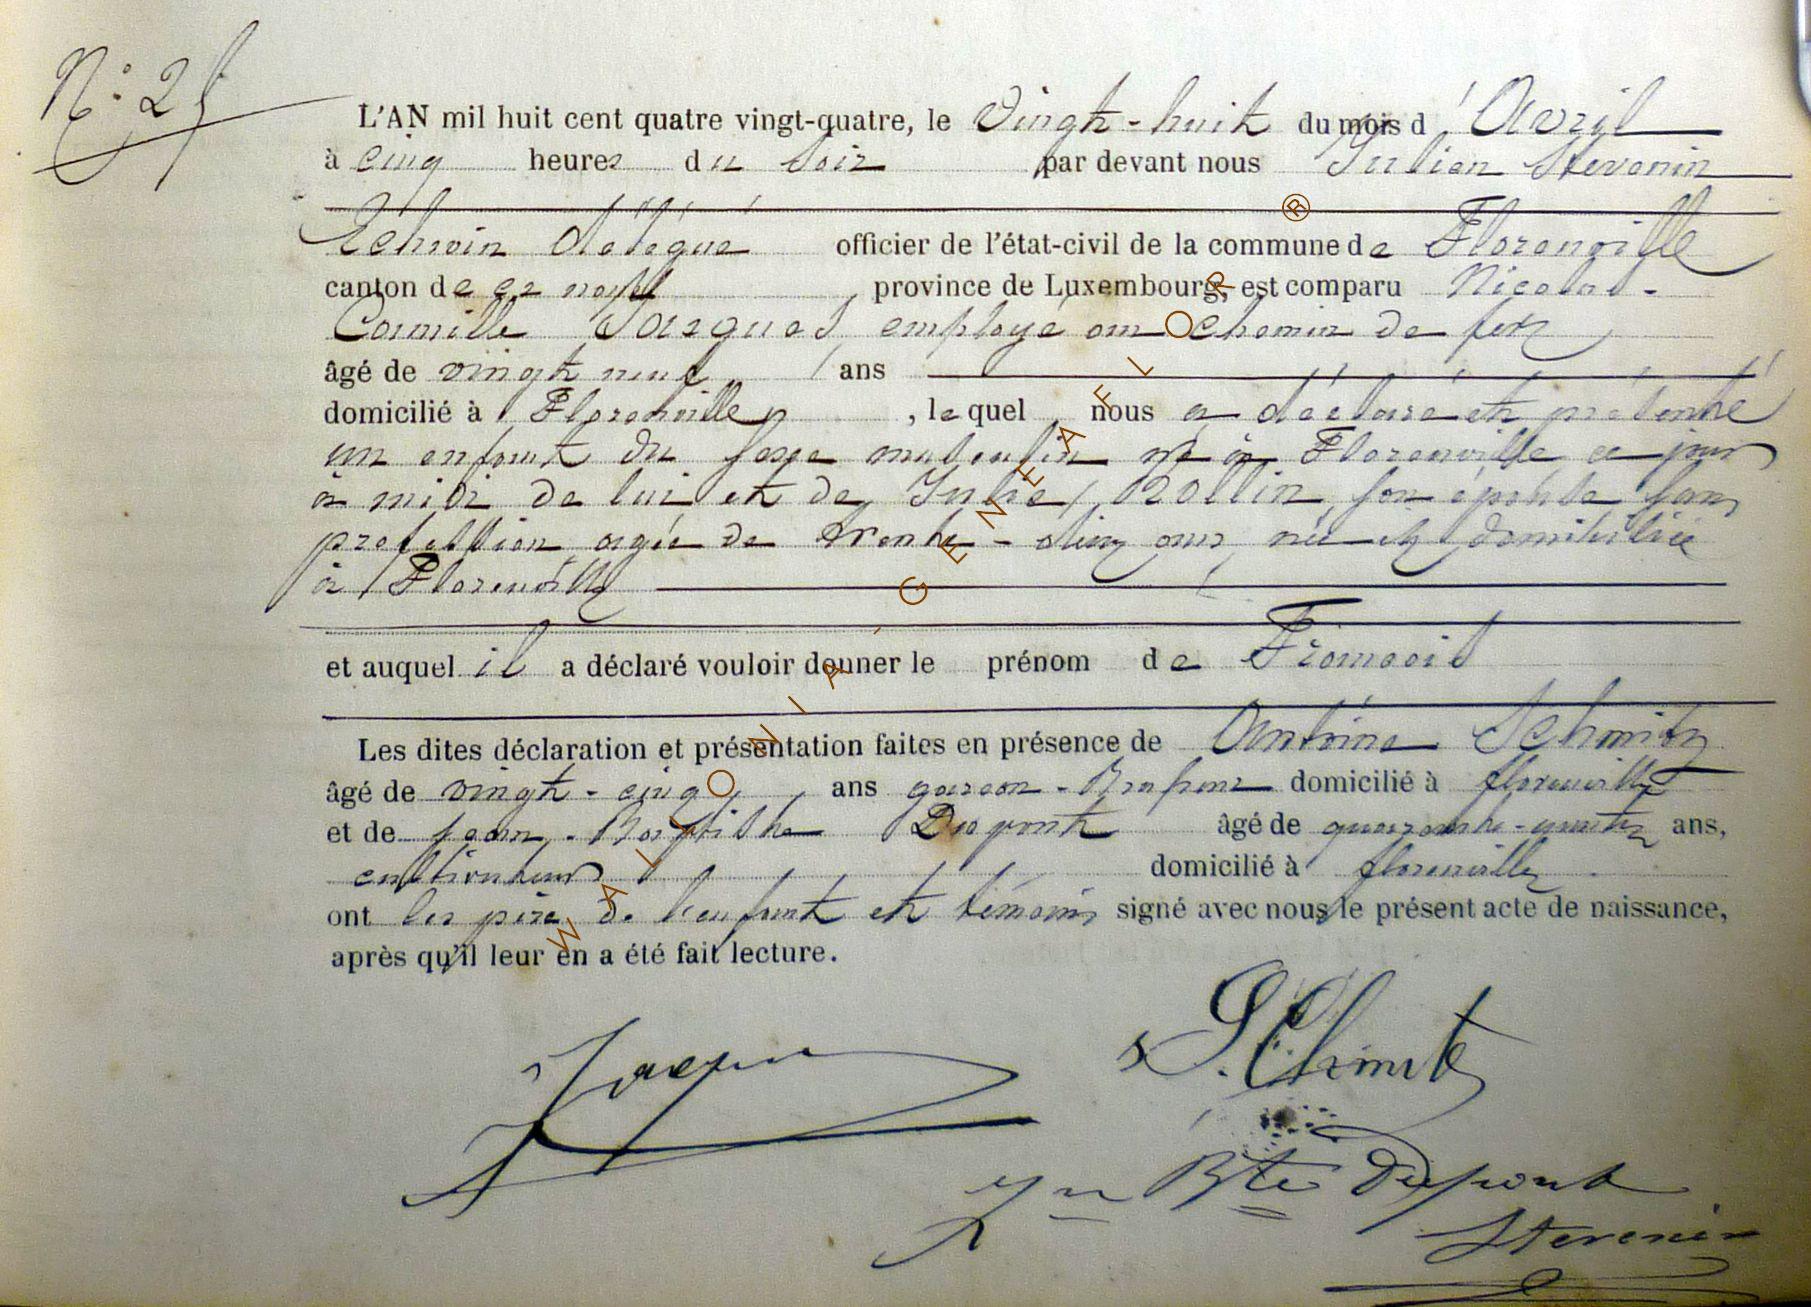 N° 25
L'AN mil huit cent quatre vingt-quatre, le Vingt-huit du mois d'Avril
à cinq heures du soir par devant nous Julien Stevenin
Echevin délégué officier de l'état-civil de la commune de Florenville
canton de province de Luxembourg, est comparu Nicolas-
Camille Jacques, employé au chemin de fer
âgé de vingt neuf ans
domicilié à Florenville, lequel nous a déclaré et présenté
un enfant du sexe masculin né à Florenville ce jour
à midi de lui et de Julie Rollin, son épouse sans
profession agée de trente-deux ans, née et domiciliée
à Florenville
et auquel il a déclaré vouloir donner le prénom de François
Les dites déclaration et présentation faites en présence de Antoine Schmitz
âgé de vingt-cinq ans garçon-brasseur domicilié à florenville
et de Jean-Baptiste Dupont âgé de ans,
cultivateur domicilié à florenville
ont les père de l'enfant et témoins signé avec nous le présent acte de naissance,
après qu'il leur en a été fait lecture.
Jacques
Schmitz
Jn Bte Dupont
Stevenin
WALLONIA - GENEAFLOR ®